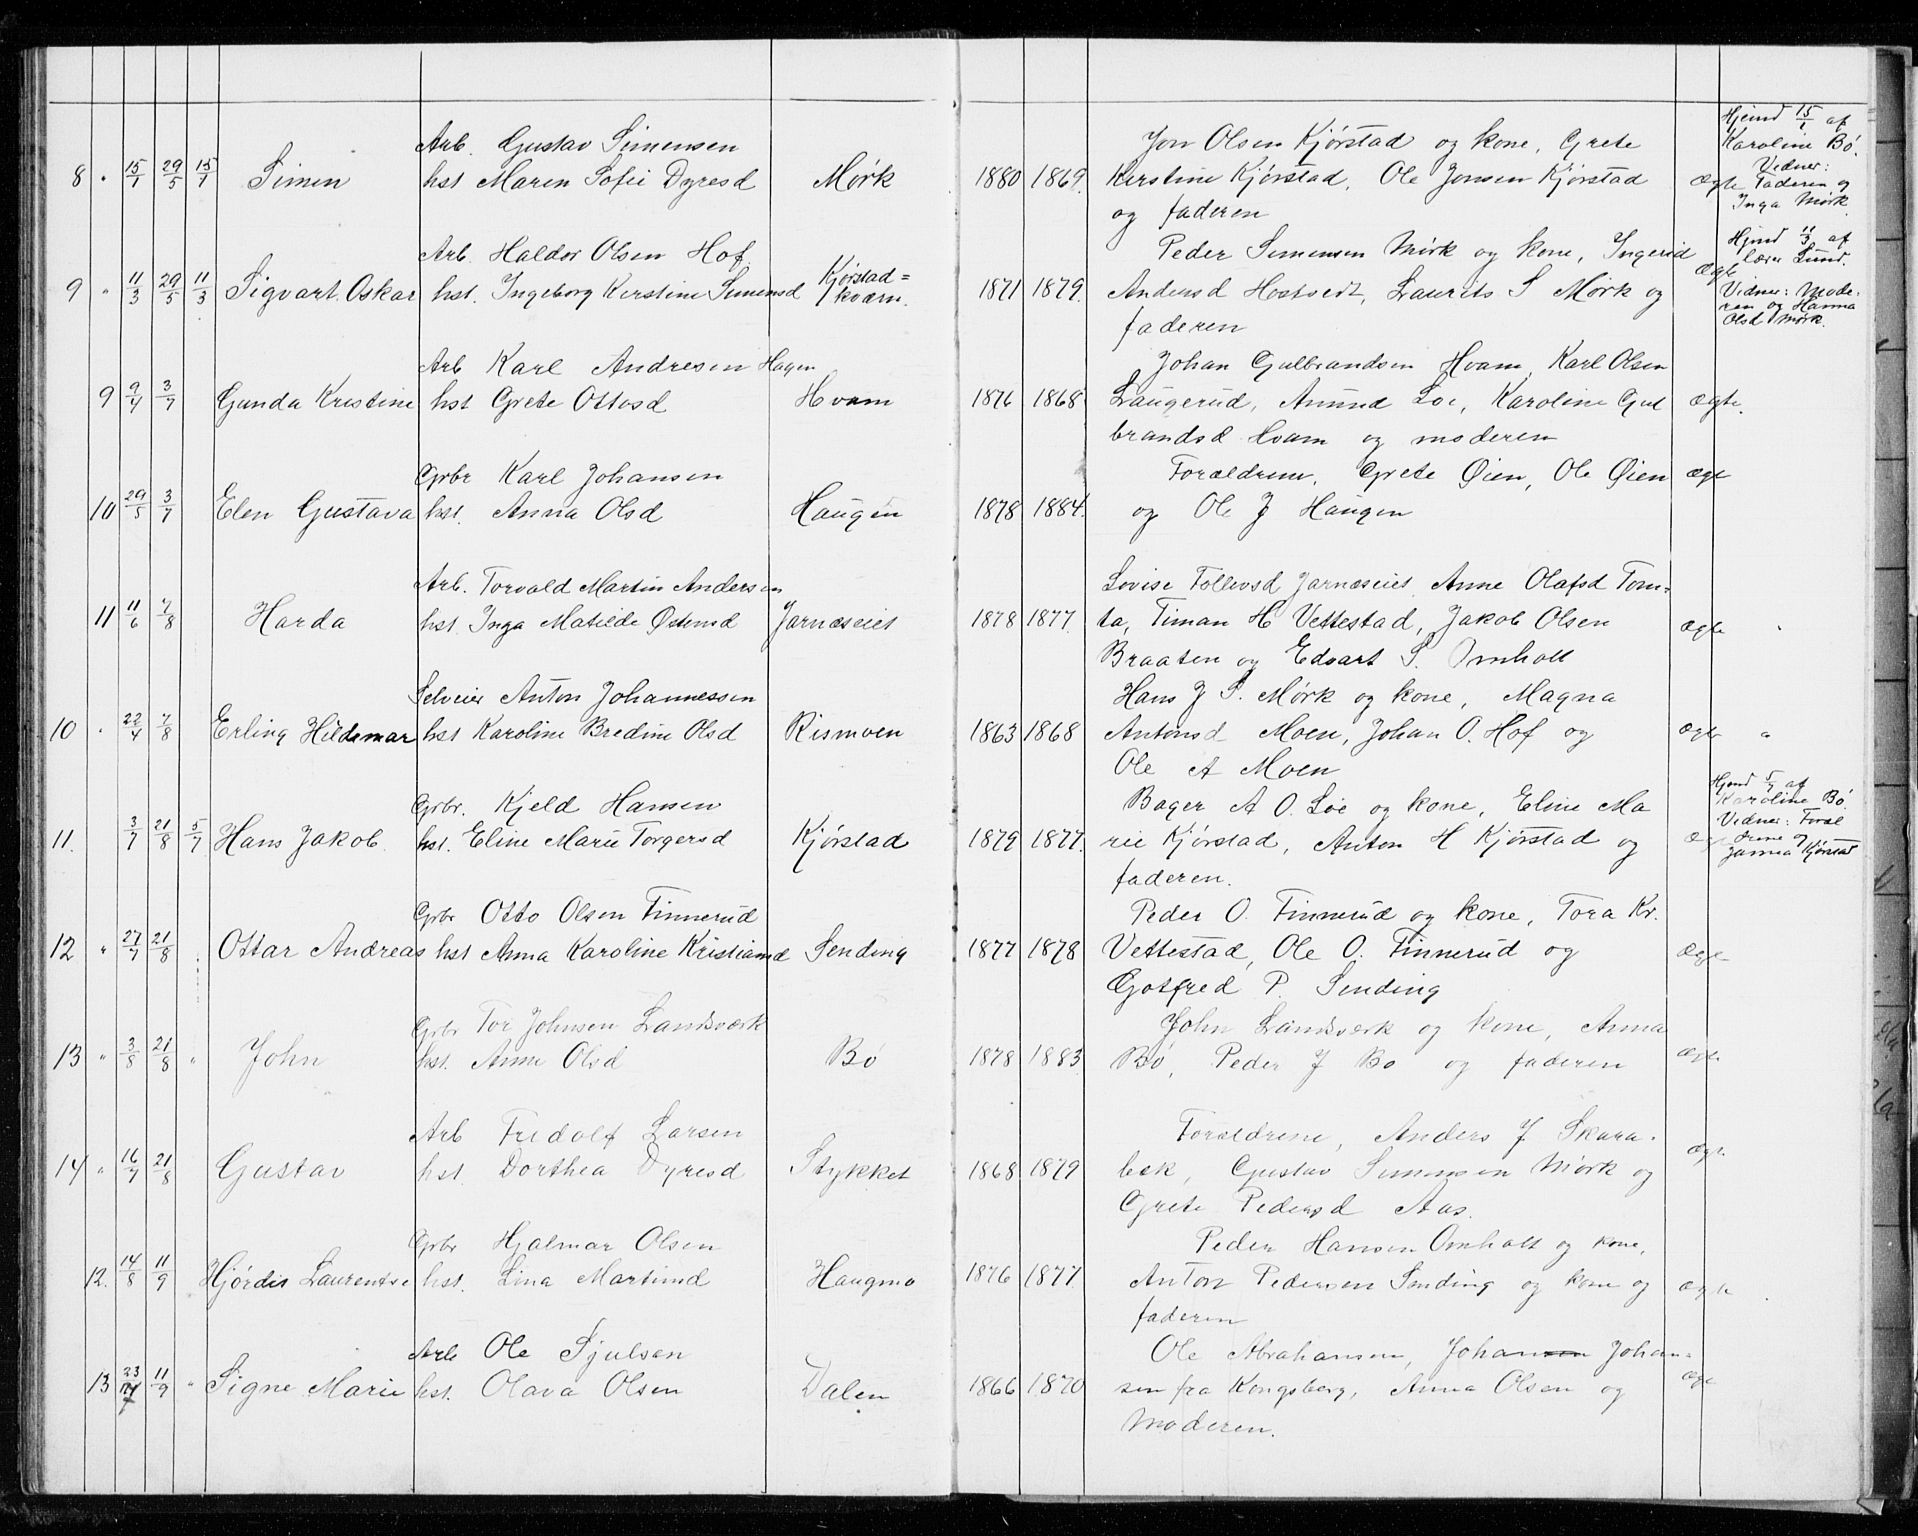 Arb. Gustav Simensen Jon Olsen Kjørstad og kone, Grete Hjemd 15/1 af
8 " 15/1 29/5 15/1 Simen hst Maren Sofie Dyresd Mørk 1880 1869 Kirstine Kjørstad, Ole Jonsen Kjørstad Ægte Karoline Bø.
og faderen Vidner: Faderen og
Inga Mørk
Arb. Haldor Olsen Hof. Peder Simensen Mørk og kone, Ingerid Hjmd 11/3 af
9 " 11/3 29/5 11/3 Sigvart Oskar hst. Ingeborg Kirstine Simensd Kjørstad= 1871 1879. Andersd Hostvedt, Laurits S Mørk og Ægte lærer Lund.
kværn. faderen Vidner: Mode-
ren og Hanna
Olsd Mørk.
Arb Karl Andresen Hagen Johan Gulbrandsen Hvam, Karl Olsen
9 9/4 3/7 Gunda Kristine hst Grete Ottosd Hvam 1876 1868 Laugerud, Amund Loe, Karoline Gul Ægte.
brandsd Hvam og moderen
Grbr Karl Johansen Forældrene, Grete Øien, Ole Øien Ægte
10 29/5 3/7 Elen Gustava hst. Anna Olsd Haugen 1878 1884. og Ole J Haugen
Arb. Torvald Martin Andersen Lovise Tollevsd Jarnæseiet Anne Olafsd Tom-
11 11/6 7/8 Harda hst. Inga Matilde Østensd Jarnæseiet 1878 1877. ta, Timan H Vettestad, Jakob Olsen Ægte "
Braaten og Edvart S. Omholt
Selveier Anton Johannessen Hans J S. Mørk og kone, Magna
10 . 22/4 7/8 Erling Hildemar hst Karoline Bredine Olsd Rismoen 1863 1868 Antonsd Moen, Johan O. Hof og Ægte "
Ole A Moen
Grbr. Kjeld Hansen Bager A O. Loe og kone, Eline Ma Hjemd 5/7 af
11. 3/7 21/8 5/7 Hans Jakob. hst. Eline Marie Torgersd Kjørstad 1879 1877. rie Kjørstad, Anton H Kjørstad og Ægte Karoline Bø.
faderen. Vidner: Foræl
drene og
Janna Kjørstad
Grbr Otto Olsen Finnerud Peder O. Finnerud og kone, Tora Kr.
12 " 27/7 21/8 . Ottar Andreas hst Anna Karoline Kristiansd Sending 1877 1878 Vettestad, Ole O. Finnerud og Ægte
Gotfred P. Sending
Grbr Tor Johnsen Landsværk John Landsværk og kone, Anna
13 " 3/8 21/8 " John hst. Anne Olsd Bø 1878 1883 Bø, Peder J Bø og faderen Ægte
Arb Fridolf Larsen Forældrene, Anders J Skara-
14 " 16/7 21/8 Gustav hst. Dorthea Dyresd Stykket 1868 1879 bek, Gustav Simensen Mørk og Ægte
Grete Pedersd Aas.
Grbr Hjalmar Olsen Peder Hansen Omholt og kone,
12. 14/8 11/9 Hjördis Laurentse hst. Lina Martinsd Haugmo 1876 1877. Anton Pedersen Sending og kone og Ægte
faderen
Arb Ole Sjulsen Ole Abrahamsen, Johansen Johan-
13 23/7 11/9 " Signe Marie hst. Olava Olsen Dalen 1866 1870 sen fra Kongsberg, Anna Olsen og Ægte
Moderen.